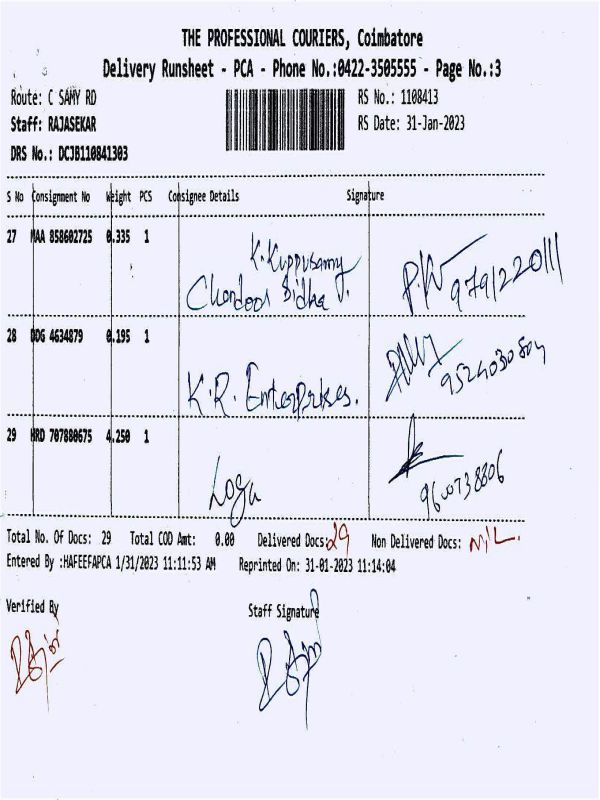 THE PROFESSIONAL COURIERS, Coimbatore
Delivery Runsheet - PCA - Phone No.:0422-3505555 - Page No.:3
Route: C SAMY RD
RS No.: 1108413
Staff: RAJASEKAR
RS Date: 31-Jan-2023
DRS No.: DCJB110841303
S No Consignment No Weight PCS Consignee Details Signature
27 MAA 858602725 0.335 1
K.Kuppusamy
Chandool Sidha
9791220111
28 DDG 4634879 0.195 1
K.R. Enterprises.
9524030804
29 HRD 707880675 4.250 1
Logu
9600738806
Total No. Of Docs: 29 Total COD Amt: 0.00 Delivered Docs: 29 Non Delivered Docs: NIL.
Entered By :HAFEEFAPCA 1/31/2023 11:11:53 AM Reprinted On: 31-01-2023 11:14:04
Verified By Staff Signature